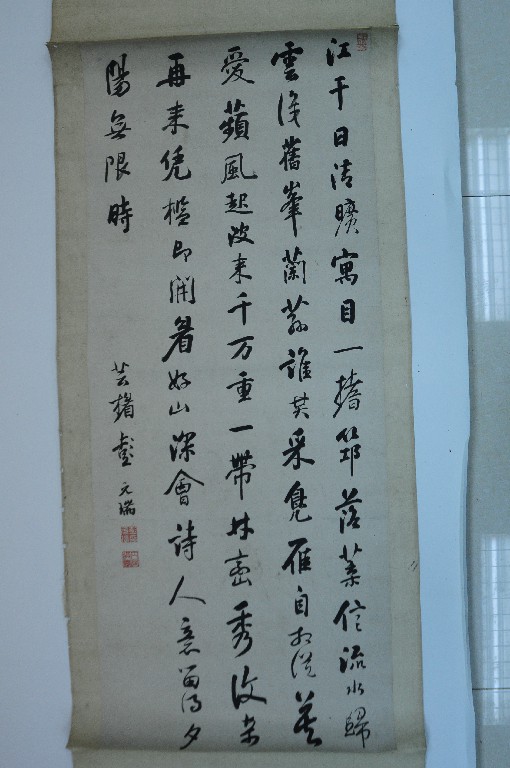 江干日清曠寓目一搘筇落葉信流水歸
雲復舊峯蘭蓀誰共采鳧雁自相從最
愛蘋風起波來千万重一帶林巒秀復奇
再來凭檻即開眉好山深會詩人意留得夕
陽無限時
芸楣彭元瑞